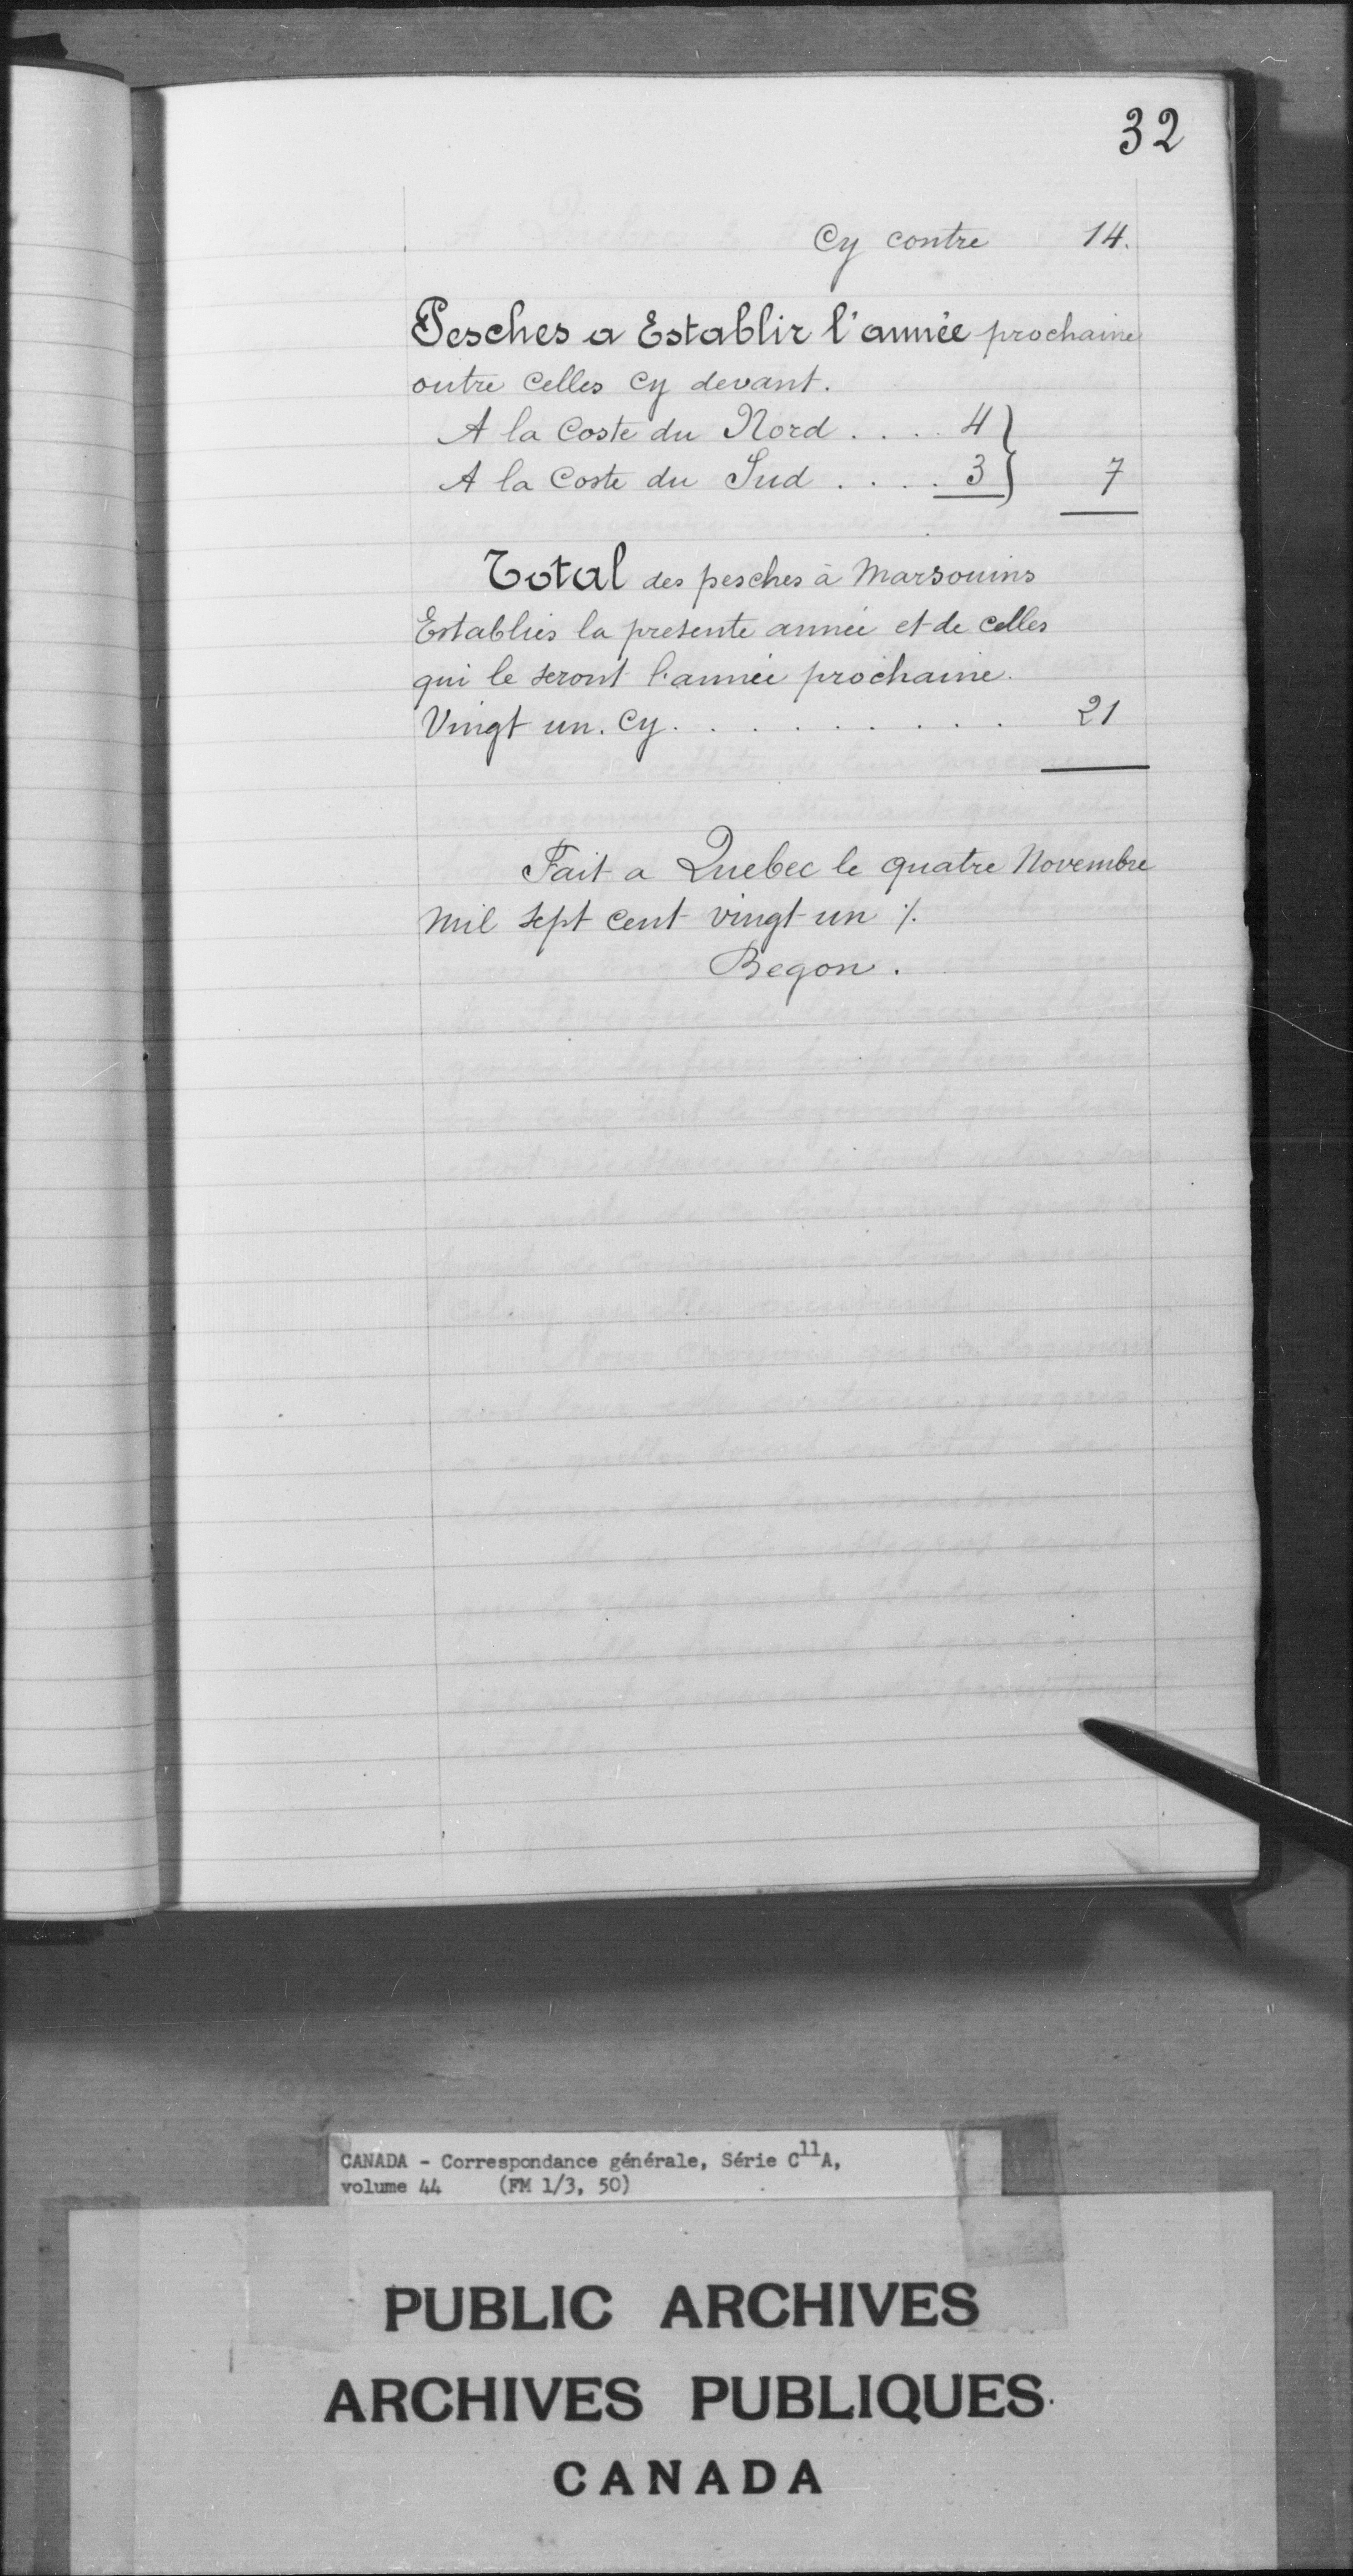 32
Cy contre 14.
Pesches a Establir l'année prochaine
outre celles cy devant.
A la Coste du Nord . . . . 4 }
A la Coste du Sud . . . . 3 } 7
Total des pesches à Marsouins
Establies la presente année et de celles
qui le seront l'année prochaine.
Vingt un. Cy . . . . . . . . . 21
Fait a Quebec le quatre Novembre
mil sept cent vingt un ./.
Begon.
CANADA - Correspondance générale, Série C11A,
volume 44 (FM 1/3, 50)
PUBLIC ARCHIVES
ARCHIVES PUBLIQUES
CANADA